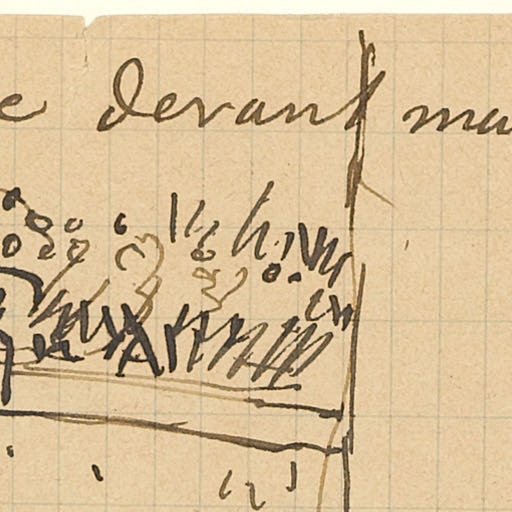 devant ma